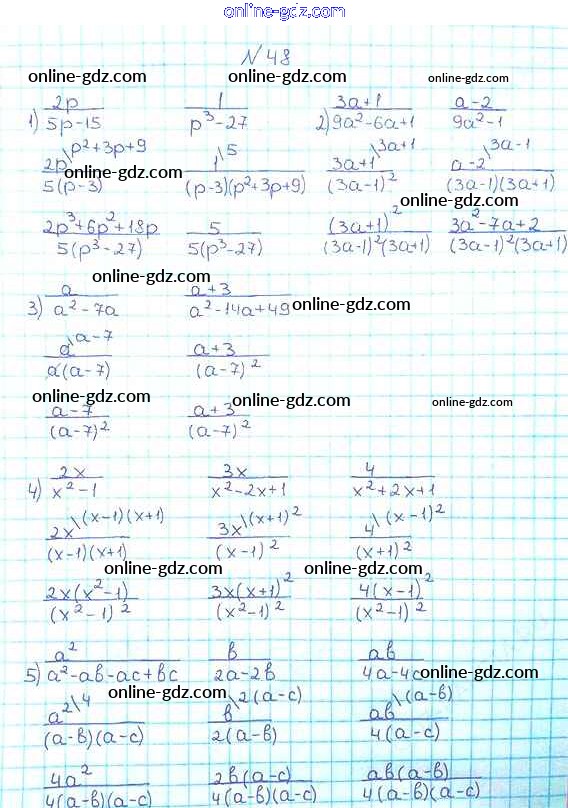 online-gdz.com
N 48
online-gdz.com online-gdz.com online-gdz.com
1) 2p/(5p-15) 1/(p³-27) 2) (3a+1)/(9a²-6a+1) (a-2)/(9a²-1)
2p\p²+3p+9/(5(p-3)) 1\5/((p-3)(p²+3p+9)) 3a+1\3a+1/((3a-1)²) a-2\3a-1/((3a-1)(3a+1))
online-gdz.com
online-gdz.com
(2p³+6p²+18p)/(5(p³-27)) 5/(5(p³-27)) (3a+1)²/((3a-1)²(3a+1)) (3a²-7a+2)/((3a-1)²(3a+1))
online-gdz.com online-gdz.com
3) a/(a²-7a) (a+3)/(a²-14a+49)
online-gdz.com
a\a-7/(a(a-7)) (a+3)/((a-7)²)
online-gdz.com online-gdz.com online-gdz.com
(a-7)/((a-7)²) (a+3)/((a-7)²)
online-gdz.com online-gdz.com
4) 2x/(x²-1) 3x/(x²-2x+1) 4/(x²+2x+1)
2x\(x-1)(x+1)/((x-1)(x+1)) 3x\(x+1)²/((x-1)²) 4\(x-1)²/((x+1)²)
online-gdz.com online-gdz.com
2x(x²-1)/((x²-1)²) 3x(x+1)²/((x²-1)²) 4(x-1)²/((x²-1)²)
5) a²/(a²-ab-ac+bc) b/(2a-2b) ab/(4a-4c)
online-gdz.com
online-gdz.com
a²\4/((a-b)(a-c)) b\2(a-c)/(2(a-b)) ab\(a-b)/(4(a-c))
online-gdz.com online-gdz.com
4a²/(4(a-b)(a-c)) 2b(a-c)/(4(a-b)(a-c)) ab(a-b)/(4(a-b)(a-c))